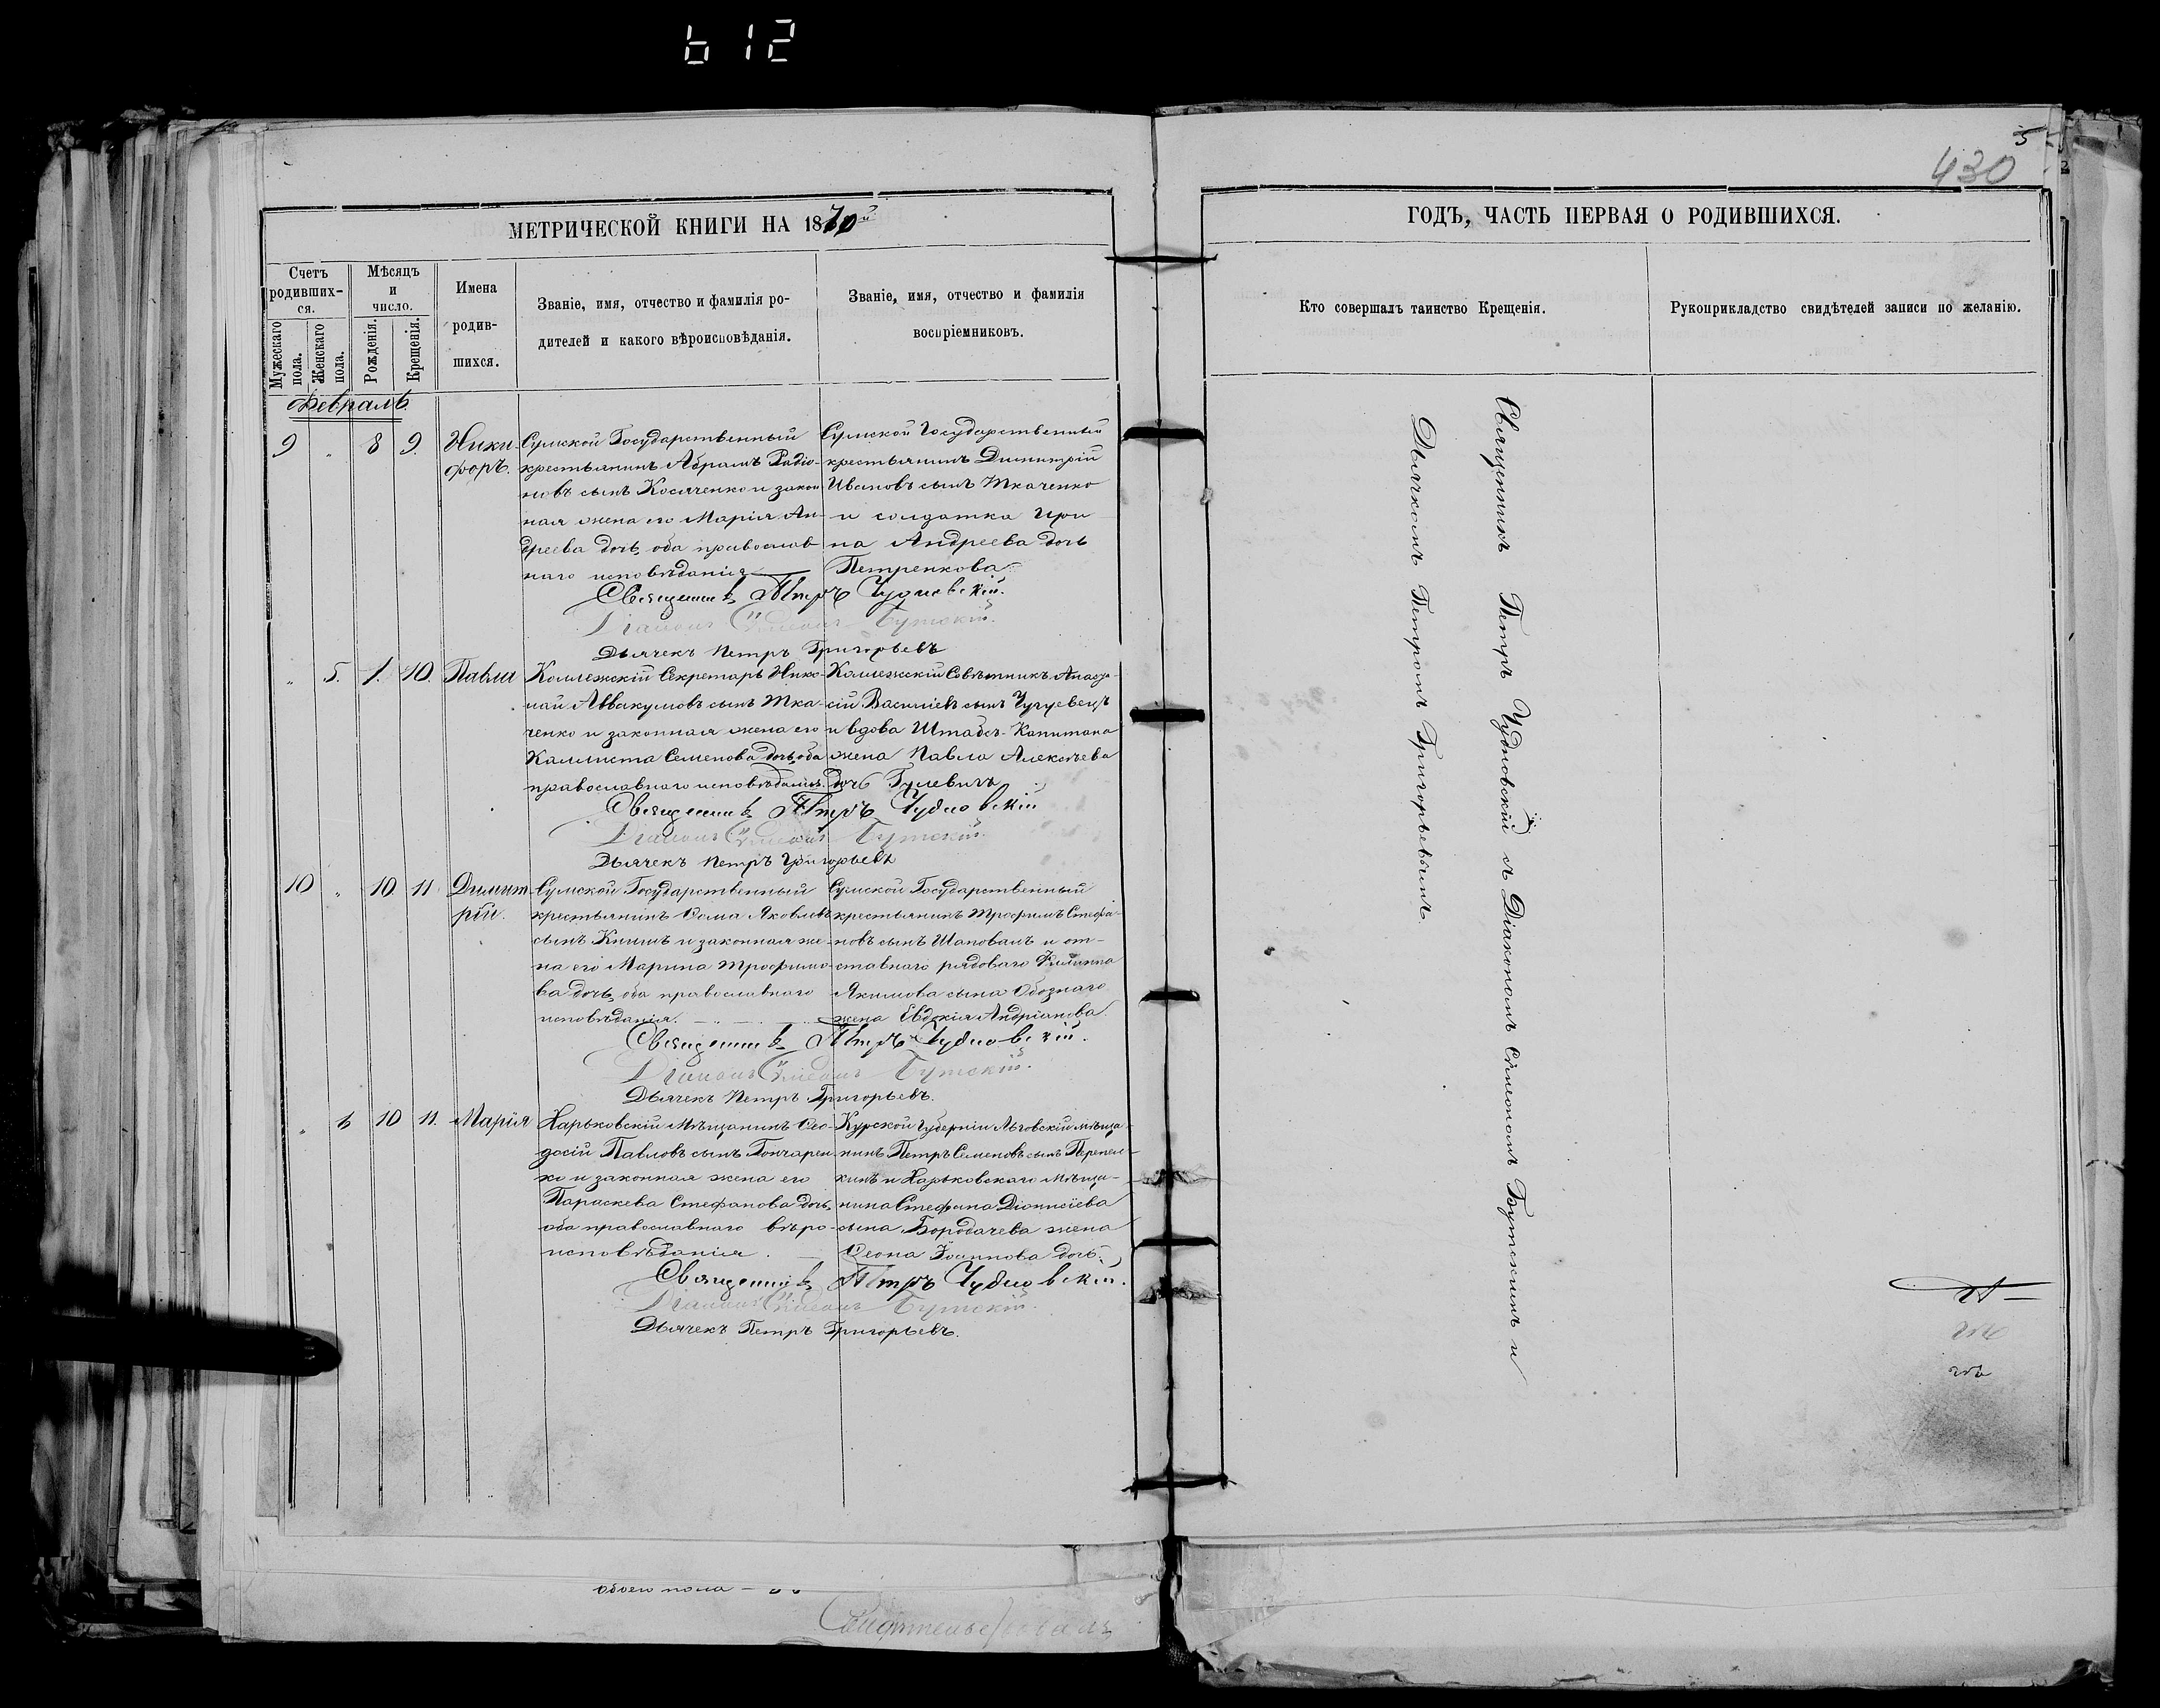 612
5
430
МЕТРИЧЕСКОЙ КНИГИ НА 1870й
ГОДЪ, ЧАСТЬ ПЕРВАЯ О РОДИВШИХСЯ.
Счетъ
родивших-
ся.
Мужескаго
пола.
Женскаго
пола.
Мѣсяцъ
и
число.
Рожденія.
Крещенія.
Имена
родив-
шихся.
Званіе, имя, отчество и фамилія ро-
дителей и какого вѣроисповѣданія.
Званіе, имя, отчество и фамилія
воспріемниковъ.
Кто совершалъ таинство Крещенія.
Рукоприкладство свидѣтелей записи по желанію.
Февраль
9 " 8 9. Ники-
форъ.
Сумской Государственный
крестьянинъ Абрамъ Радіо-
новъ сынъ Косяченко и закон
ная жена его Марія Ан-
дреева дочь, оба православ
наго исповѣданія
Сумской Государственный
крестьянинъ Димитрій
Ивановъ сынъ Ткаченко
и солдатка Ири
на Андреева дочь
Петренкова
Священникъ Петръ Чудновскій.
Діаконъ Сѵмеонъ Бутскій.
Дьячекъ Петръ Григорьевъ
" 5. 1. 10. Павла
Коллежскій Секретарь Нико-
лай Аввакумовъ сынъ Тка-
ченко и законная жена его
Каллиста Семенова дочь, оба
православнаго исповѣданія.
Коллежскій Совѣтникъ Анаста-
сій Василіевъ сынъ Чугуевецъ
и вдова Штабсъ-Капитана
жена Павла Алексѣева
дочь Гулевичъ
Священникъ Петръ Чудновскій
Діаконъ Сѵмеонъ Бутскій.
Дьячекъ Петръ Григорьевъ
10 " 10. 11 Димит
рій.
Сумской Государственный
крестьянинъ Ѳома Яковлевъ
сынъ Книшъ и законная же-
на его Марина Трофимо-
ва дочь, оба православнаго
исповѣданія.
Сумской Государственный
крестьянинъ Трофимъ Стефа-
новъ сынъ Шаповалъ и от-
ставнаго рядоваго Филиппа
Якимова сына Обознаго
жена Евдокія Андріанова.
Священникъ Петръ Чудновскій.
Діаконъ Сѵмеонъ Бутскій.
Дьячекъ Петръ Григорьевъ.
" 6 10 11. Марія
Харьковскій Мѣщанинъ Ѳео-
досій Павловъ сынъ Гончарен
ко и законная жена его
Параскева Стефанова дочь,
оба православнаго вѣро-
исповѣданія.
Курской Губерніи Льговскій мѣща-
нинъ Петръ Семеновъ сынъ Перепел-
кинъ и Харьковскаго мѣща-
нина Стефана Діонисіева
сына Бородачева жена
Ѳеона Іоаннова дочь.
Священникъ Петръ Чудновскій.
Діаконъ Сѵмеонъ Бутскій.
Дьячекъ Петръ Григорьевъ.
Священникъ Петръ Чудновскій съ Діакономъ Сѵмеономъ Бутскимъ и
Дьячкомъ Петромъ Григорьевымъ.
обоего пола —